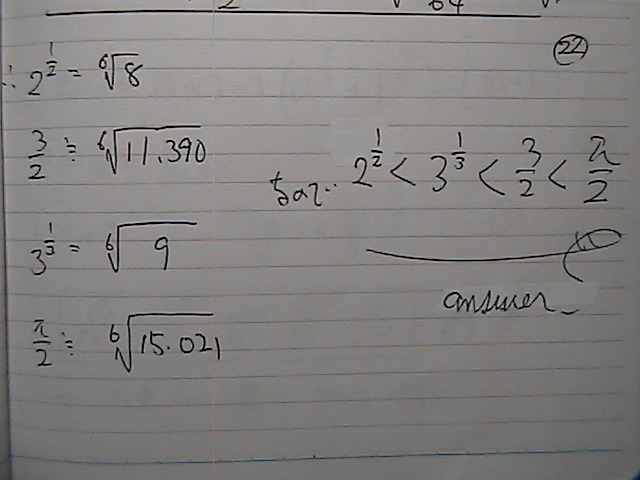 2 √64
㉒
∴ 2^{1/2} = ⁶√8
3/2 ≒ ⁶√11.390
3^{1/3} = ⁶√9
π/2 ≒ ⁶√15.021
2^{1/2} < 3^{1/3} < 3/2 < π/2
answer